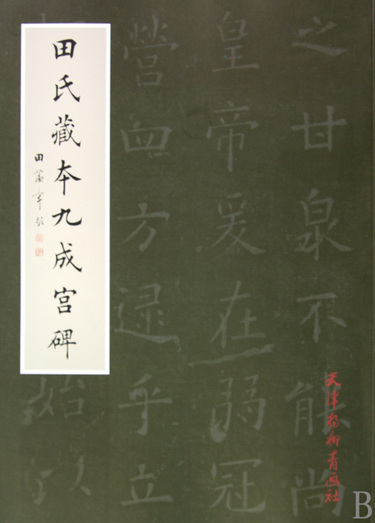 田氏藏本九成宫碑
田蕴章
之甘泉不能尚
皇帝爰在弱冠
營四方逮乎立
始以
天津杨柳青画社
B